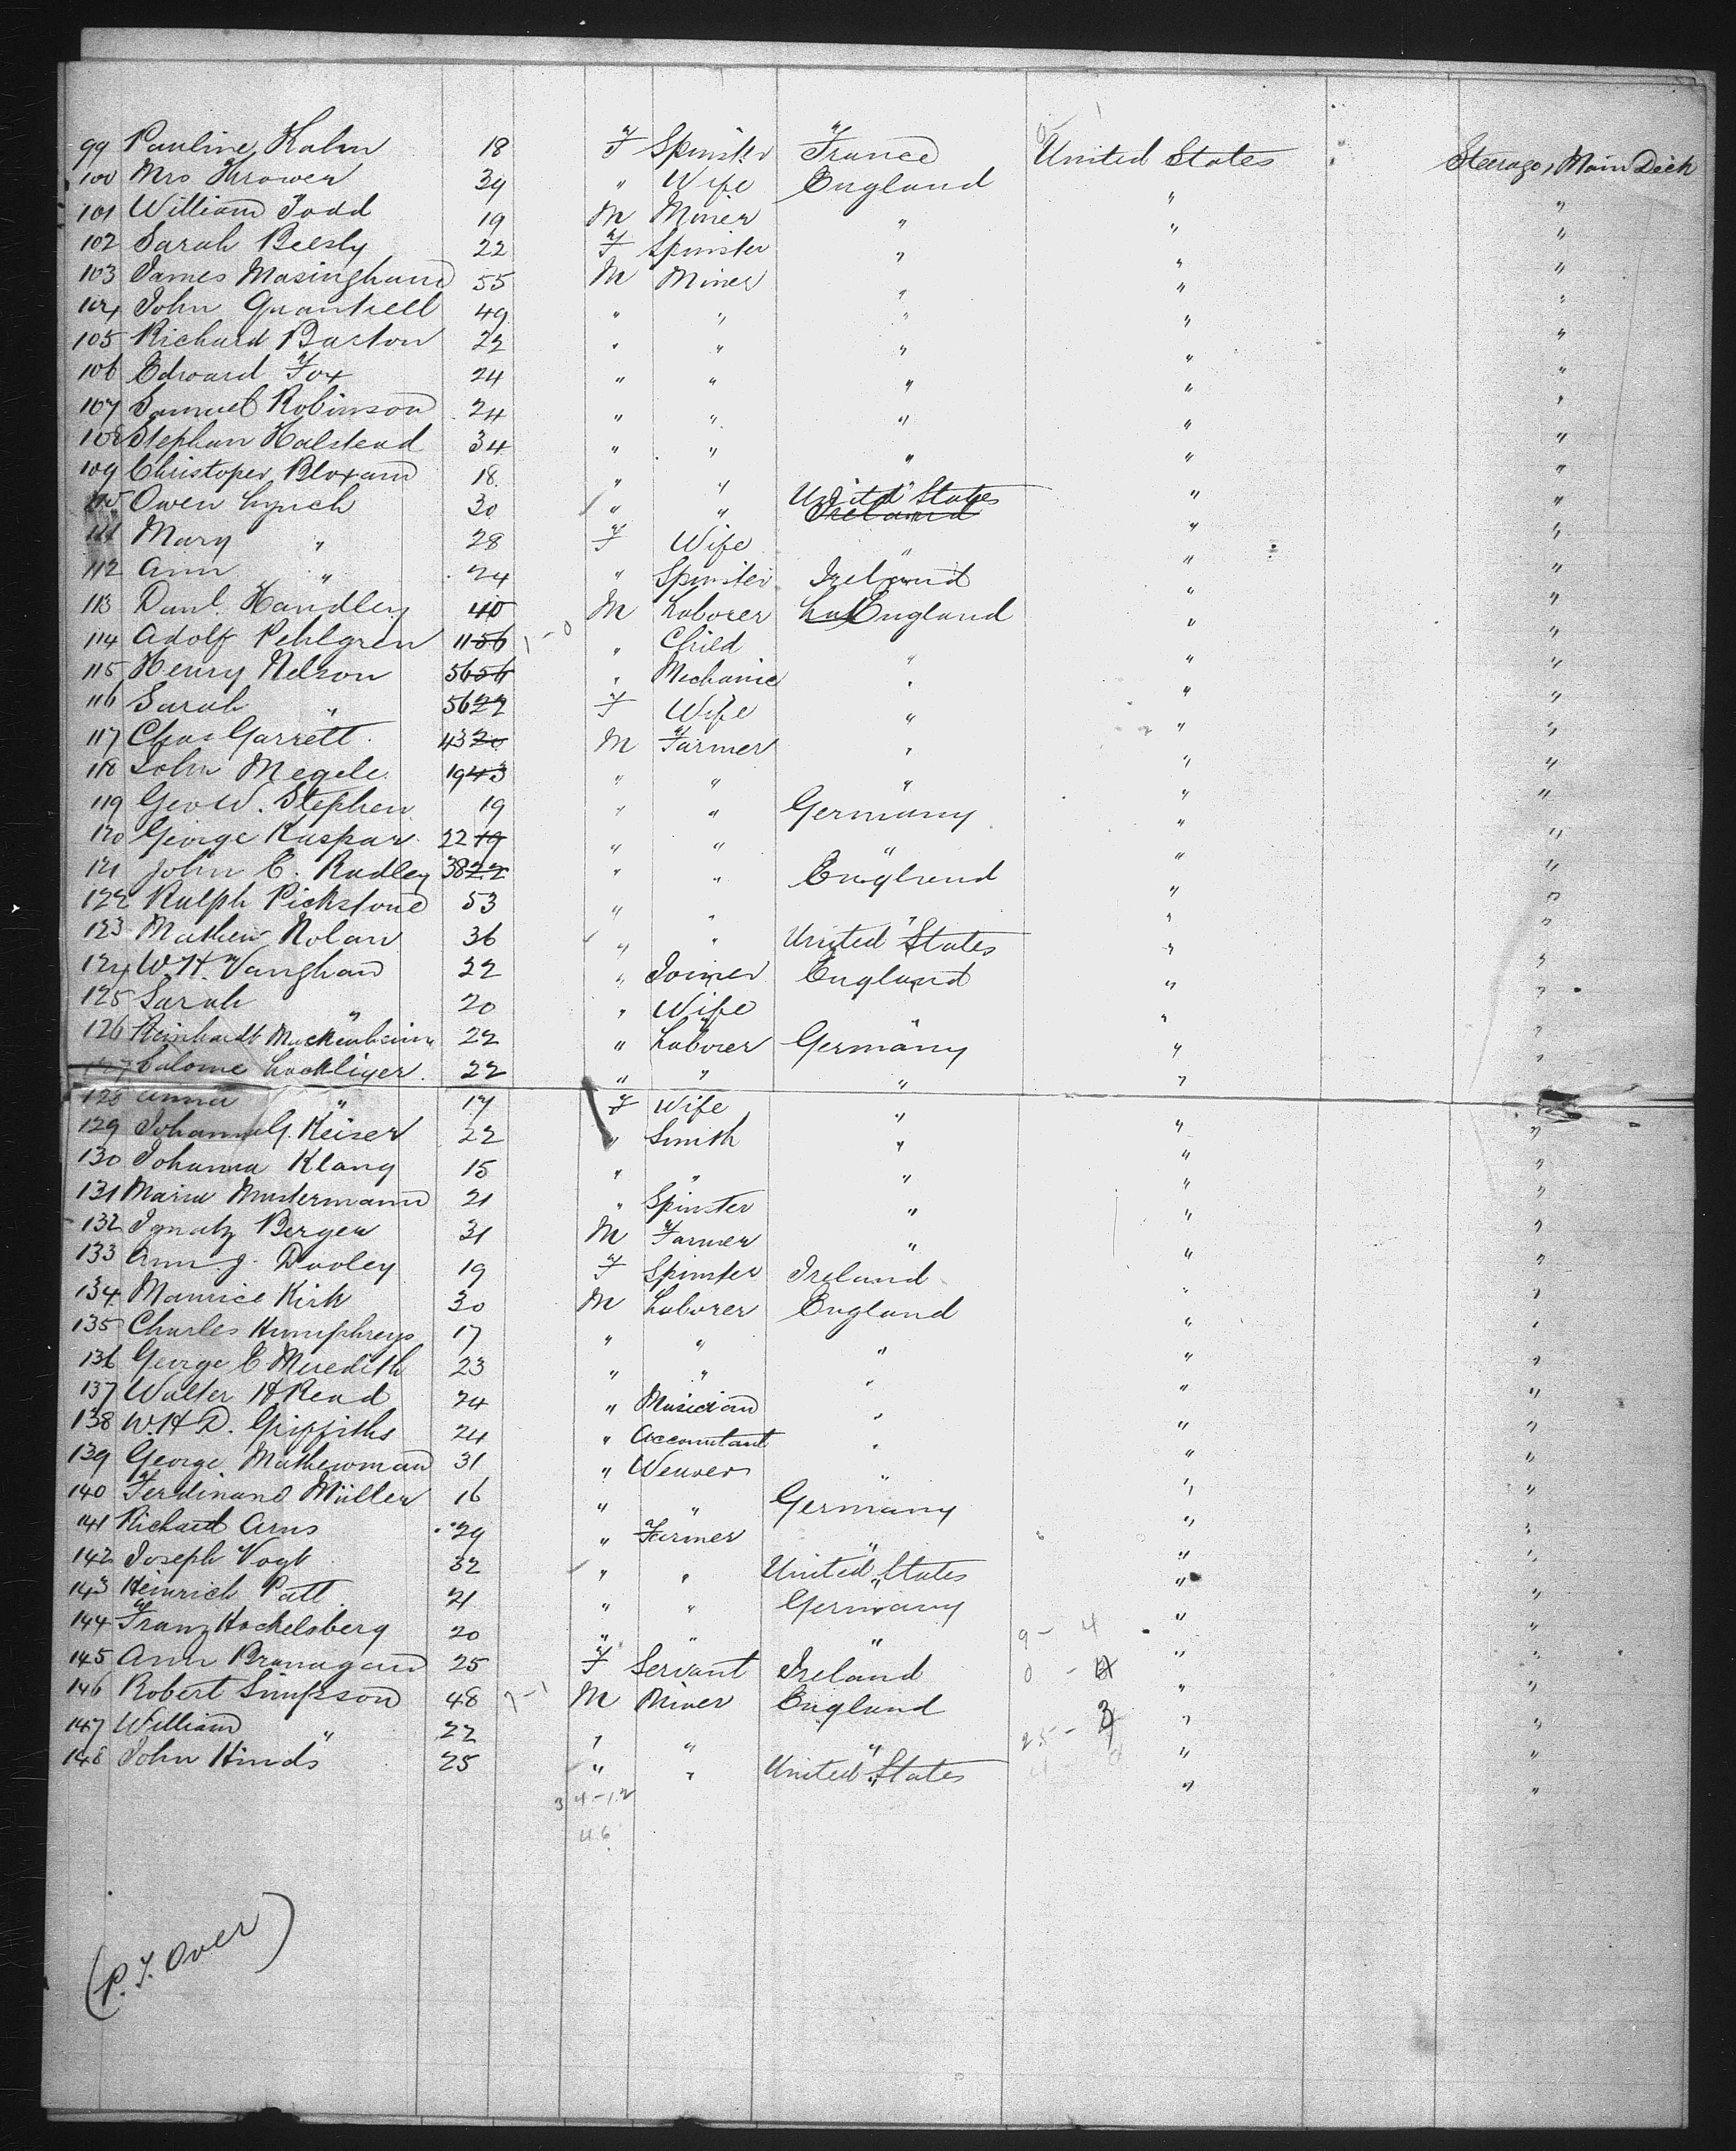 99 Pauline Kahn 18 F Spinster France United States Steerage, Main Deck
100 Mrs Thrower 34 " Wife England " "
101 William Todd 19 M Miner " " "
102 Sarah Beesly 22 F Spinster " " "
103 James Masingham 55 M Miner " " "
104 John Quantrell 49 " " " " "
105 Richard Barton 22 " " " " "
106 Edward Fox 24 " " " " "
107 Samuel Robinson 24 " " " " "
108 Stephen Halstead 34 " " " " "
109 Christoper Bloxam 18 " " " " "
110 Owen Lynch 30 " " United States Ireland " "
111 Mary " 28 F Wife " " "
112 Ann " 24 " Spinster Ireland " "
113 Danl. Handley 40 M Laborer England " "
114 Adolf Pehlgren 11 56 " Child " " "
115 Henry Nelson 56 56 " Mechanic " " "
116 Sarah " 56 22 F Wife " " "
117 Chas Garrett 43 20 M Farmer " " "
118 John Megele 19 43 " " " " "
119 Geo W. Stephen 19 " " Germany " "
120 George Kaspar 22 19 " " " " "
121 John E. Radley 38 22 " " England " "
122 Ralph Pickstone 53 " " " " "
123 Mathew Nolan 36 " " United States " "
124 W. H. Vanghan 22 " Joiner England " "
125 Sarah " 20 " Wife " " "
126 Reinhardt 22 " Laborer Germany " "
127 Salome Lockliger 22 " " " " "
128 Anna " 17 F Wife " " "
129 Johann G. Keiser 22 " Smith " " "
130 Johanna Klang 15 " " " " "
131 Maria Mustermann 21 " Spinster " " "
132 Ignatz Bergen 31 M Farmer " " "
133 Ann J. Dooley 19 F Spinster Ireland " "
134 Maurice Kirk 30 M Laborer England " "
135 Charles Humphreys 17 " " " " "
136 George E Meredith 23 " " " " "
137 Walter H Read 24 " Musician " " "
138 W. H D. Griffiths 24 " Accountant " " "
139 George Mathewman 31 " Weaver " " "
140 Ferdinand Müller 16 " " Germany " "
141 Richard Arns 29 " Farmer " " "
142 Joseph Vogt 32 " " United States " "
143 Heinrich Patt 21 " " Germany " "
144 Franz Hockelsberg 20 " " " 9 - 4 " "
145 Ann Branagan 25 F Servant Ireland 0 - " "
146 Robert Simpson 48 M Miner England " "
147 William " 22 " " " 25 - 3 " "
148 John Hinds 25 " " United States " "
34 - 12
46
(P. T. Over)